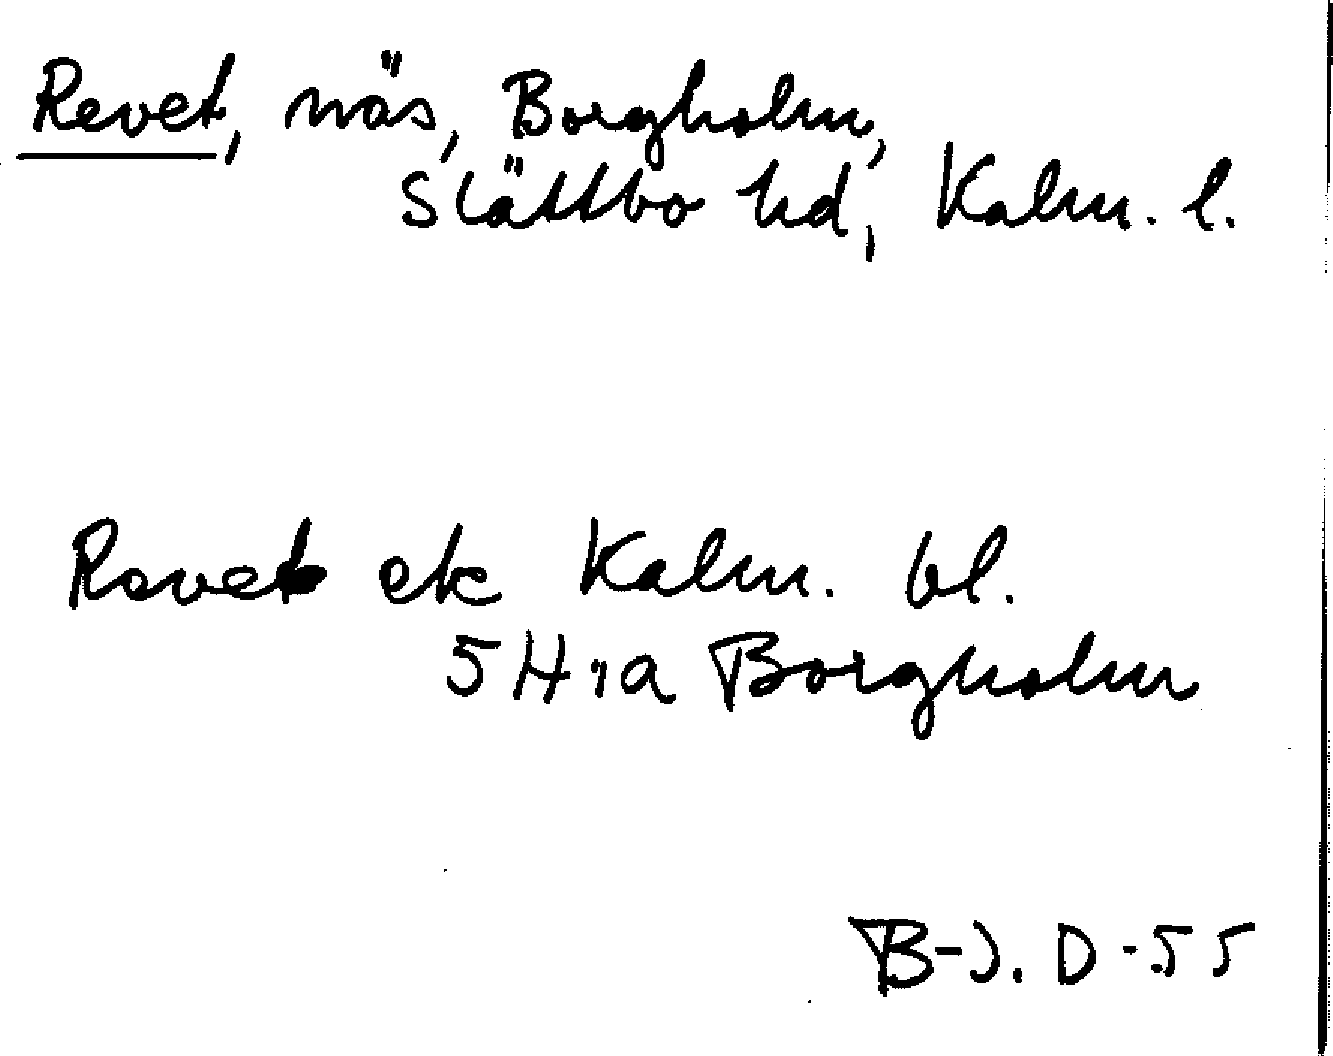 Revet, näs, Borgholm,
Slättbo hd, Kalm. l.
Revet ek Kalm. bl.
5H:a Borgholm
B-J. D -55